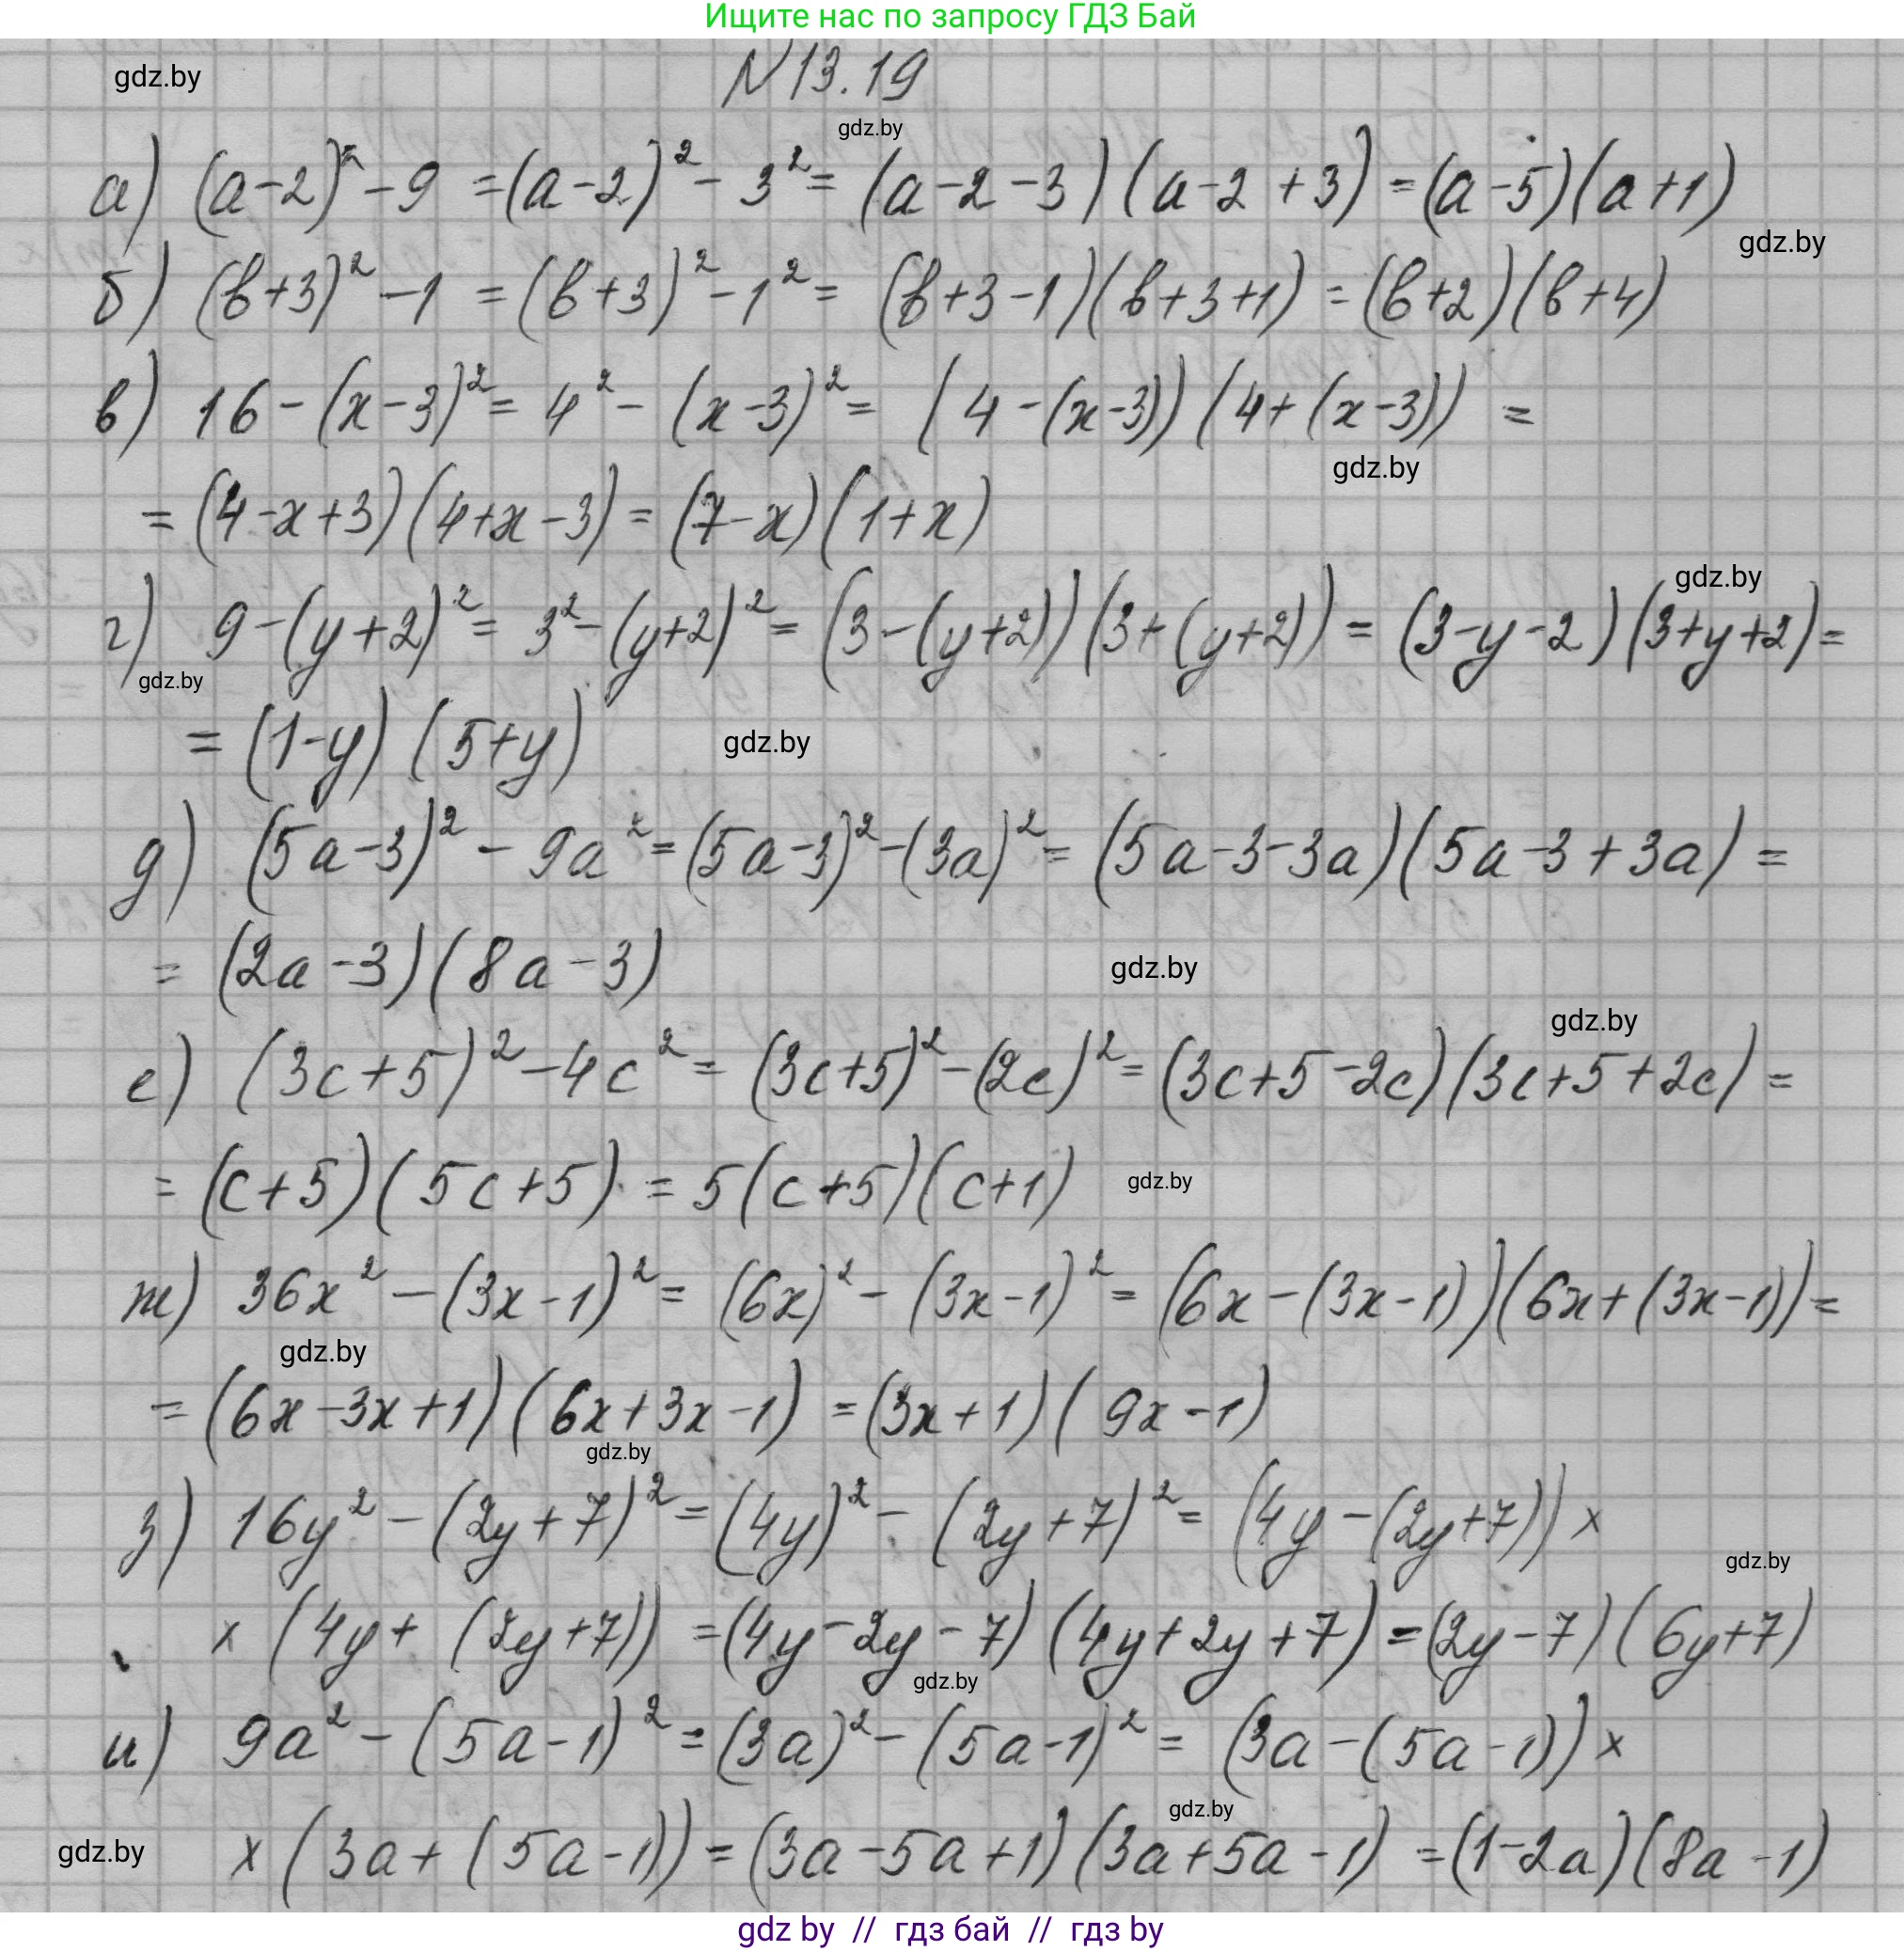 Ищите нас по запросу ГДЗ Бай
gdz.by
N13.19
gdz.by
а) (a-2)² - 9 = (a-2)² - 3² = (a-2-3)(a-2+3) = (a-5)(a+1)
gdz.by
б) (b+3)² - 1 = (b+3)² - 1² = (b+3-1)(b+3+1) = (b+2)(b+4)
в) 16 - (x-3)² = 4² - (x-3)² = (4-(x-3))(4+(x-3)) =
gdz.by
= (4-x+3)(4+x-3) = (7-x)(1+x)
gdz.by
г) 9 - (y+2)² = 3² - (y+2)² = (3-(y+2))(3+(y+2)) = (3-y-2)(3+y+2) =
gdz.by
= (1-y)(5+y)
gdz.by
д) (5a-3)² - 9a² = (5a-3)² - (3a)² = (5a-3-3a)(5a-3+3a) =
= (2a-3)(8a-3)
gdz.by
gdz.by
е) (3c+5)² - 4c² = (3c+5)² - (2c)² = (3c+5-2c)(3c+5+2c) =
= (c+5)(5c+5) = 5(c+5)(c+1)
gdz.by
ж) 36x² - (3x-1)² = (6x)² - (3x-1)² = (6x-(3x-1))(6x+(3x-1)) =
gdz.by
= (6x-3x+1)(6x+3x-1) = (3x+1)(9x-1)
gdz.by
з) 16y² - (2y+7)² = (4y)² - (2y+7)² = (4y-(2y+7)) ×
gdz.by
× (4y+(2y+7)) = (4y-2y-7)(4y+2y+7) = (2y-7)(6y+7)
gdz.by
и) 9a² - (5a-1)² = (3a)² - (5a-1)² = (3a-(5a-1)) ×
gdz.by
gdz.by
× (3a+(5a-1)) = (3a-5a+1)(3a+5a-1) = (1-2a)(8a-1)
gdz by // гдз бай // гдз by